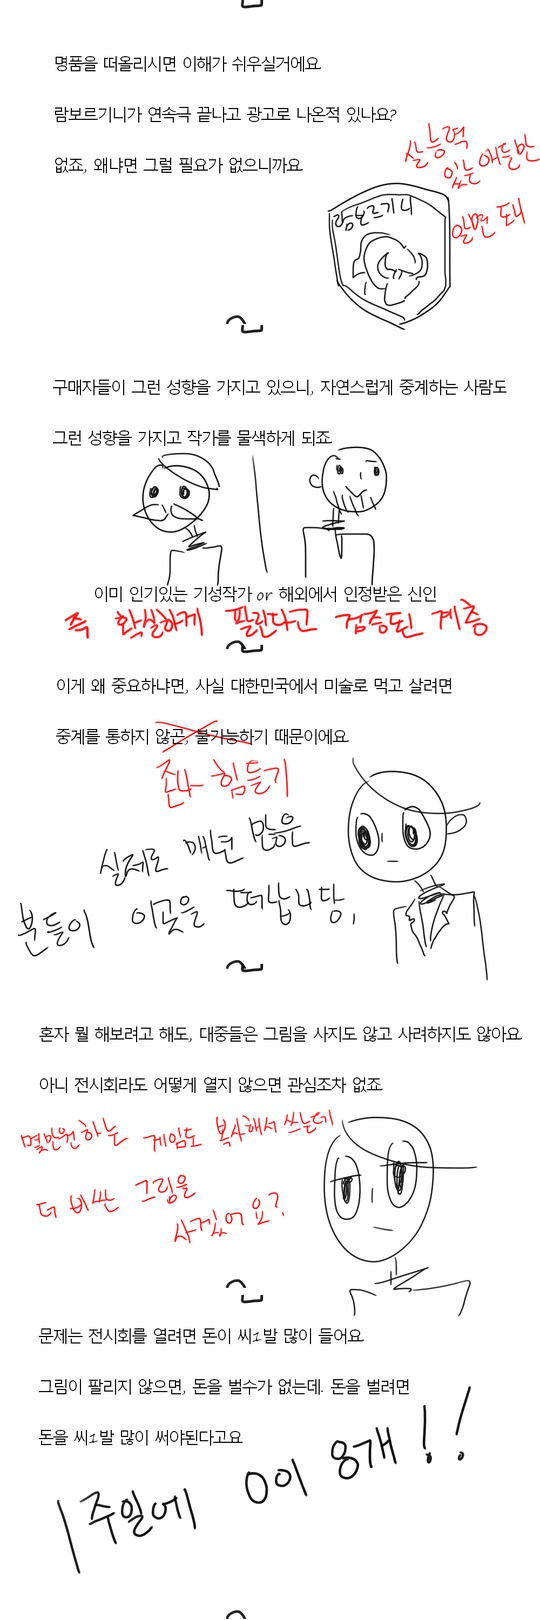 명품을 떠올리시면 이해가 쉬우실거에요
람보르기니가 연속극 끝나고 광고로 나온적 있나요?
없죠, 왜냐면 그럴 필요가 없으니까요
살능력
있는 애들만
알면 돼
람보르기니
구매자들이 그런 성향을 가지고 있으니, 자연스럽게 중계하는 사람도
그런 성향을 가지고 작가를 물색하게 되죠
이미 인기있는 기성작가 or 해외에서 인정받은 신인
즉 확실하게 팔린다고 검증된 계층
이게 왜 중요하냐면, 사실 대한민국에서 미술로 먹고 살려면
중계를 통하지 않곤, 불가능하기 때문이에요
존나 힘들기
실제로 매년 많은
분들이 이곳을 떠납니당,
혼자 뭘 해보려고 해도, 대중들은 그림을 사지도 않고 사려하지도 않아요
아니 전시회라도 어떻게 열지 않으면 관심조차 없죠
몇만원하는 게임도 복사해서 쓰는데
더 비싼 그림을
사겠어요?
문제는 전시회를 열려면 돈이 씨1발 많이 들어요
그림이 팔리지 않으면, 돈을 벌수가 없는데. 돈을 벌려면
돈을 씨1발 많이 써야된다고요
1주일에 0이 8개!!